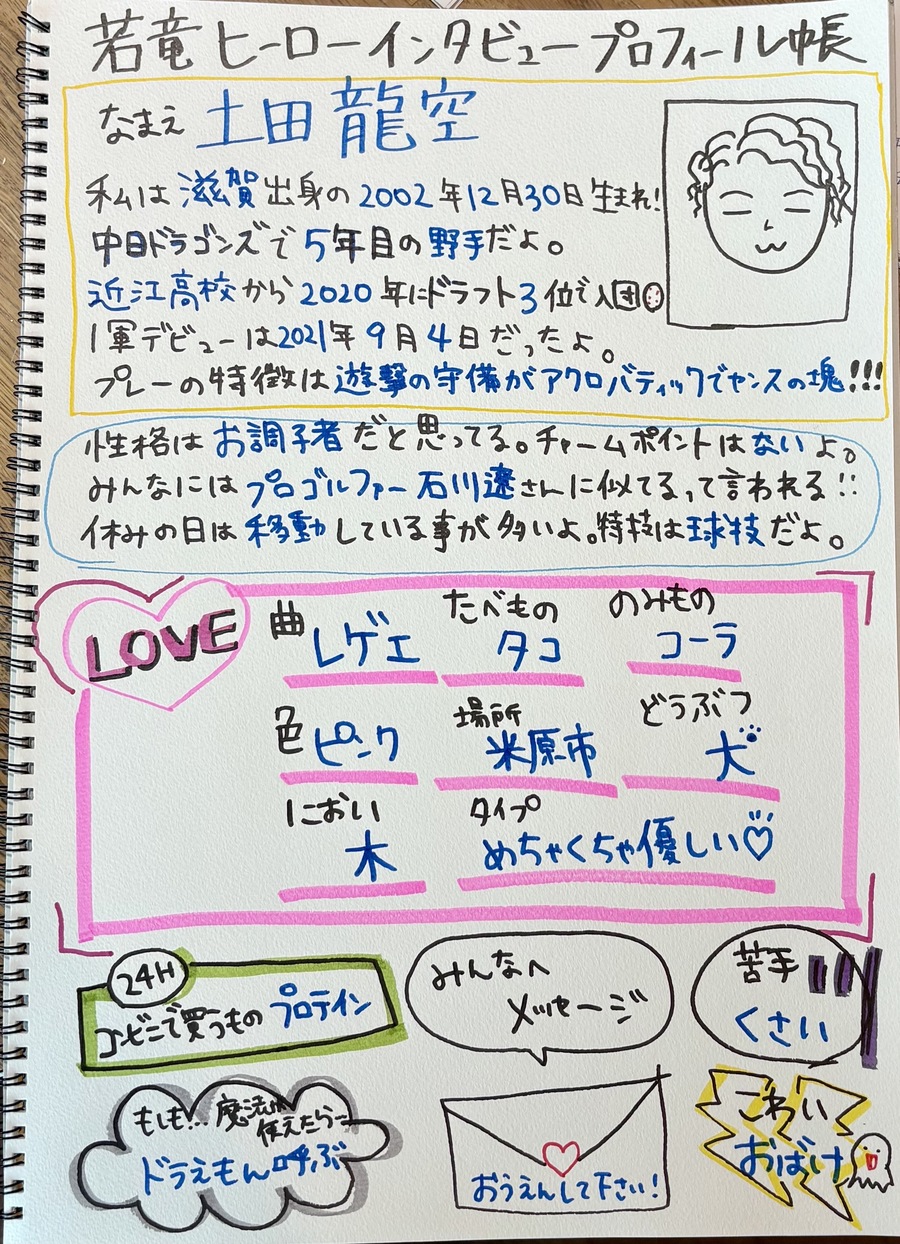 若竜ヒーローインタビュープロフィール帳
なまえ 土田龍空
私は滋賀出身の2002年12月30日生まれ!
中日ドラゴンズで5年目の野手だよ。
近江高校から2020年にドラフト3位で入団
1軍デビューは2021年9月4日だったよ。
プレーの特徴は遊撃の守備がアクロバティックでセンスの塊!!!
性格はお調子者だと思ってる。チャームポイントはないよ。
みんなにはプロゴルファー石川遼さんに似てるって言われる!!
休みの日は移動している事が多いよ。特技は球技だよ。
LOVE
曲 レゲエ
たべもの タコ
のみもの コーラ
色 ピンク
場所 米原市
どうぶつ 犬
におい 木
タイプ めちゃくちゃ優しい♡
24H
コンビニで買うもの プロテイン
みんなへ
メッセージ
苦手
くさい
もしも…魔法が
使えたら…
ドラえもん呼ぶ
おうえんして下さい!
こわい
おばけ